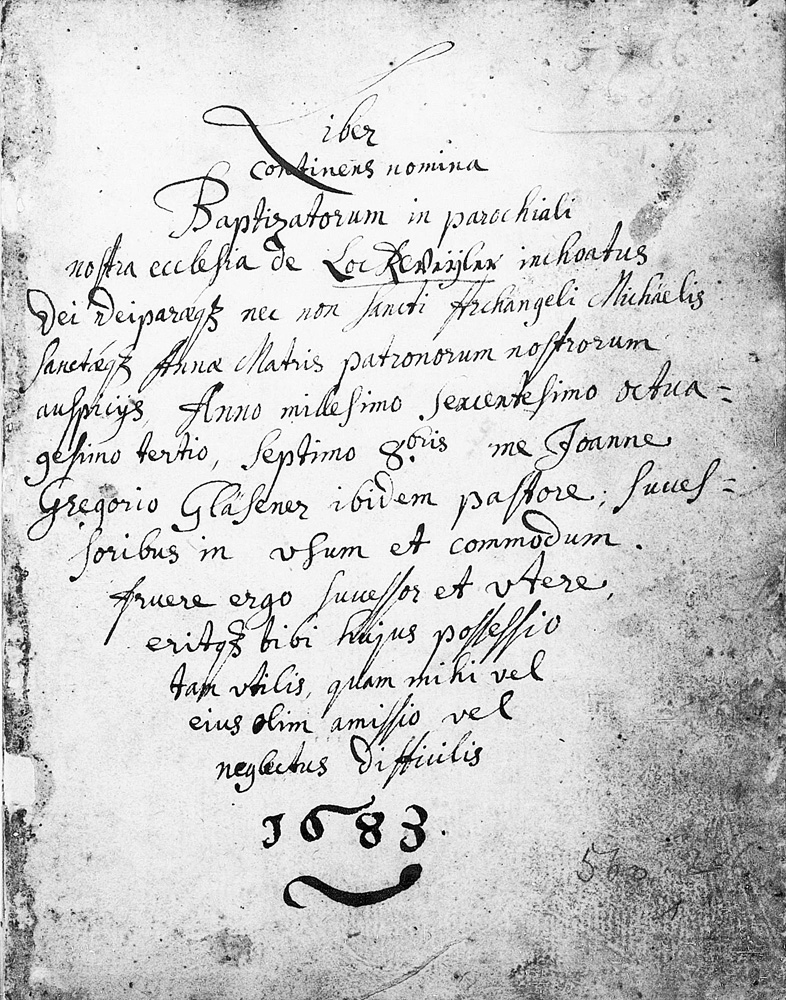 Liber
continens nomina
Baptizatorum in parochiali
nostra ecclesia de LocKeWeÿler inchoatus
Dei deiparæq3 nec non sancti Archangeli Michäelis
sanctæq3 Annæ Matris patronorum nostrorum
auspicijs, Anno millesimo sexcentesimo octua=
gesimo tertio, septimo 8bris me Joanne
Gregorio Gläsener ibidem pastore; succes=
soribus in vsum et commodum.
fruere ergo successor et vtere,
eritq3 tibi hujus possessio
tam vtilis, quam mihi vel
eius olim amissio vel
neglectus difficilis
1683.